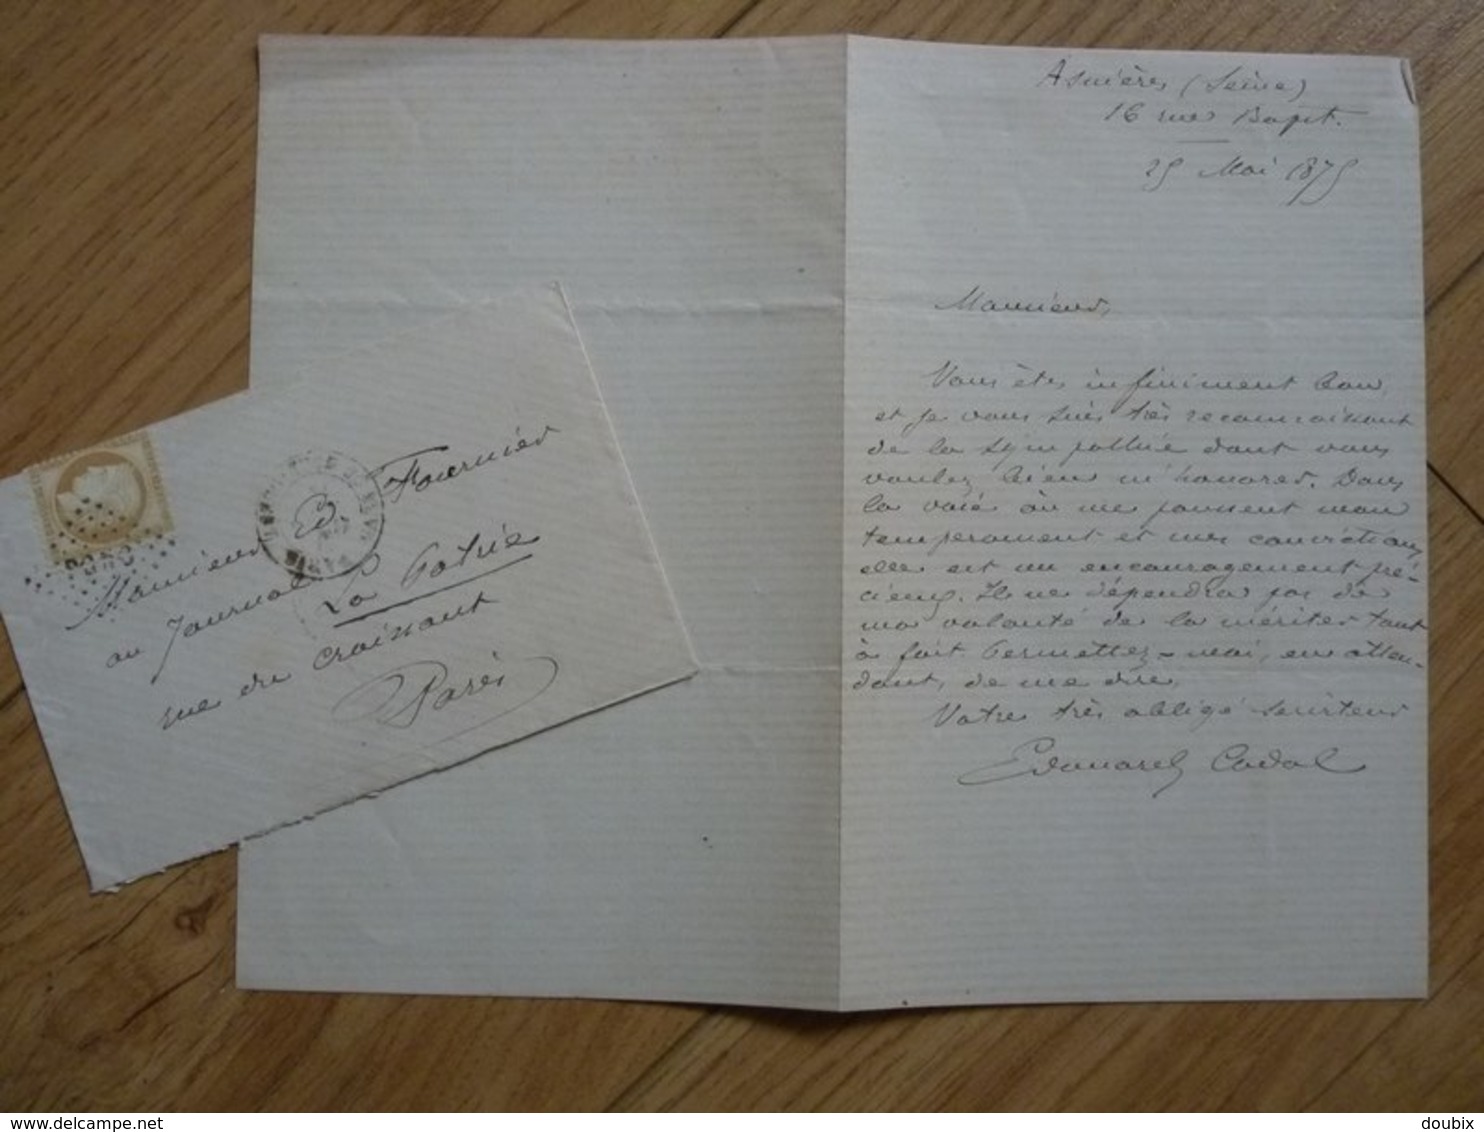 Asnières (Seine)
16 rue Bapst.
25 Mai 1875
Monsieur,
Vous êtes infiniment bon,
et je vous suis très reconnaissant
de la sympathie dont vous
voulez bien m'honorer. Dans
la voie où me poussent mon
tempérament et mes convictions,
elle est un encouragement pré-
cieux. Il ne dépendra pas de
ma volonté de la mériter tout
à fait. Permettez-moi, en atten-
dant, de me dire,
Votre très obligé serviteur
Edouard Cadol
Monsieur Ed Fournier
au Journal La Patrie
rue du Croissant
Paris
PARIS
delcampe.net
doubix